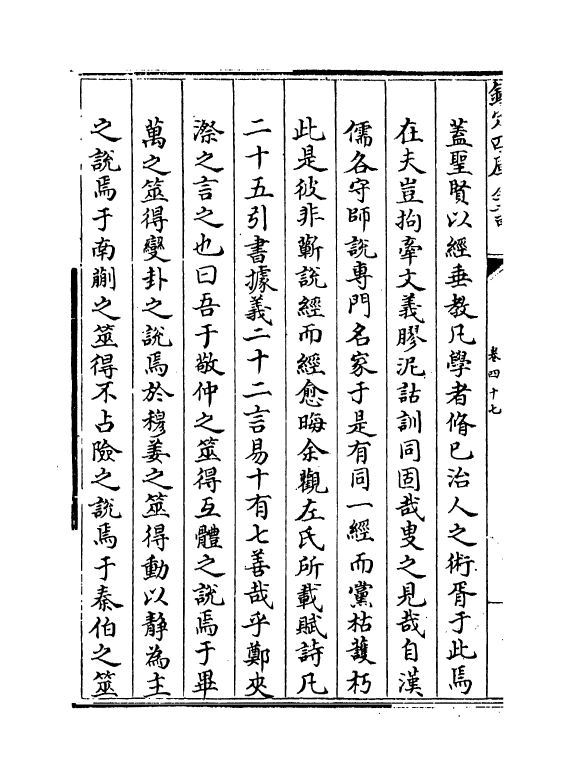 欽定四庫全書
卷四十七
蓋聖賢以經垂教凡學者脩已治人之術胥于此焉
在夫豈拘牽文義膠泥詁訓同固哉叟之見哉自漢
儒各守師說專門名家于是有同一經而黨枯護朽
此是彼非蘄說經而經愈晦余觀左氏所載賦詩凡
二十五引書據義二十二言易十有七善哉乎鄭夾
漈之言之也曰吾于敬仲之筮得互體之說焉于畢
萬之筮得變卦之說焉於穆姜之筮得動以靜為主
之說焉于南蒯之筮得不占險之說焉于秦伯之筮